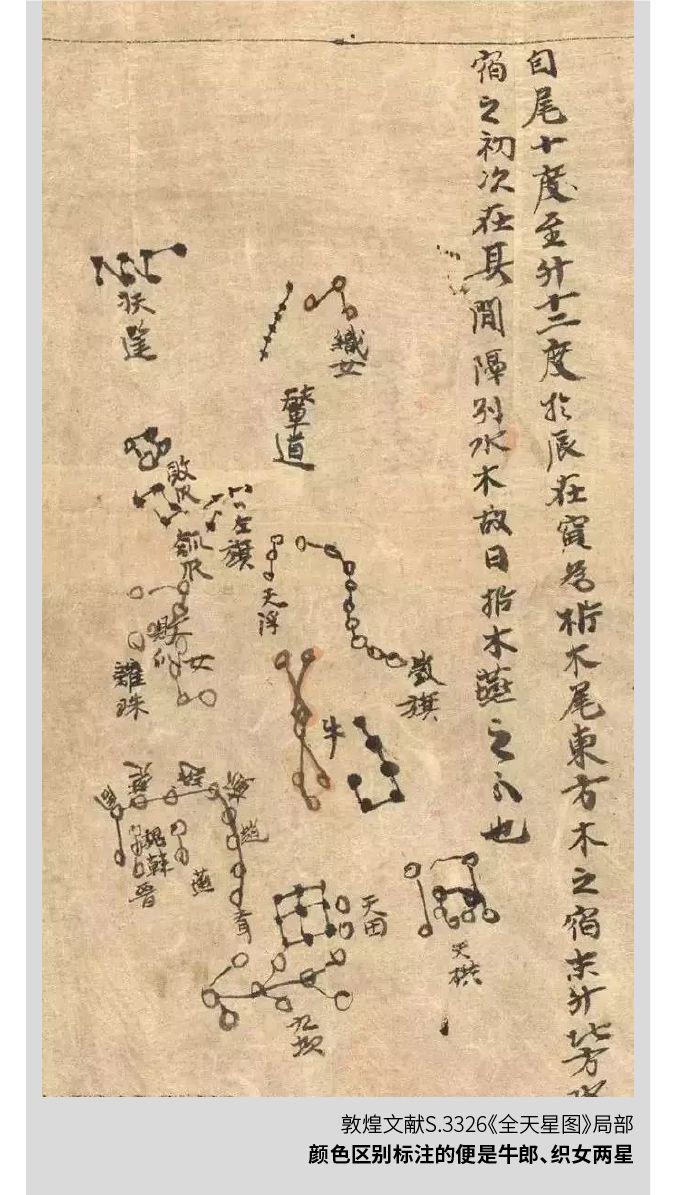 自尾十度至斗十二度於辰在寅為析木尾東方木之宿末斗北方水
宿之初次在其間隔別水木故曰析木燕之分也
織女
扶筐
輦道
敗瓜
左旗
瓠瓜
天浮
女
離珠
旗
牛
趙
魏
韓
燕
晉
天田
九坎
敦煌文献S.3326《全天星图》局部
颜色区别标注的便是牛郎、织女两星